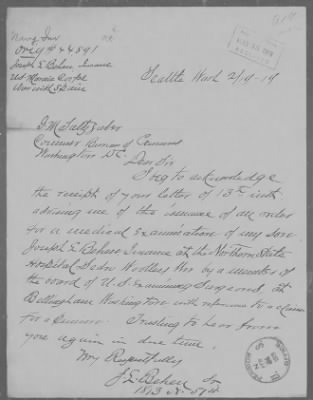 Navy Inv
Orig # 44591
Joseph E Behen Insane
US Marine Corps
War with Spain
Seattle Wash 2/19-14
Commr Bureau of Pensions
Washington DC.
Dear Sir
I beg to acknowledge
the receipt of your letter of 13th inst
advising me of the issuance of an order
for a medical examination of my son
Joseph E Behen Insane at the Northern State
Hospital Sedro Woolley Wn by a member of
the board of U.S. Examining Surgeons at
Bellingham Washington with reference to a claim
for a Pension. Trusting to hear from
you again in due time,
Very Respectfully
J E Behen Sr